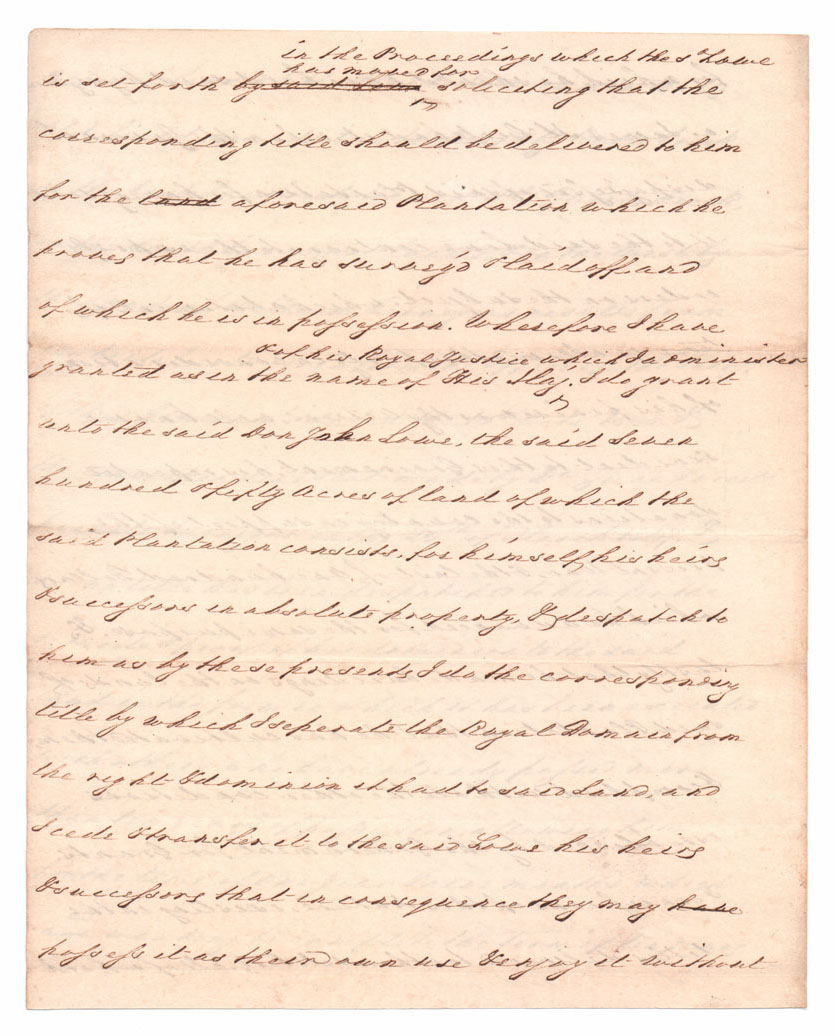 in the Proceedings which the sd Lowe
has moved for
is set forth by said Lowe soliciting that the
corresponding title should be delivered to him
for the land aforesaid Plantation which he
proves that he has survey'd & laid off, and
of which he is in possession. Wherefore I have
& of his Royal Justice which I administer
granted as in the name of His Maj. I do grant
unto the said Don John Lowe, the said Seven
hundred & fifty Acres of land of which the
said Plantation consists, for himself, his heirs
& successors in absolute property, & despatch to
him as by these presents I do the corresponding
title by which I seperate the Royal Domain from
the right & dominion it had to said Land, and
I cede & transfer it to the said Lowe his heirs
& successors that in consequence they may have
possess it as their own use & enjoy it without